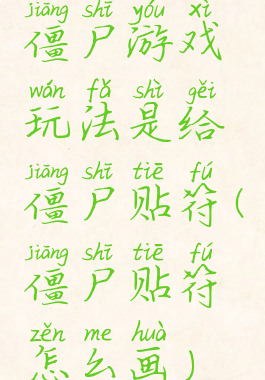 jiāng shī yóu xì
僵尸游戏
wán fǎ shì gěi
玩法是给
jiāng shī tiē fú
僵尸贴符(
jiāng shī tiē fú
僵尸贴符
zěn me huà
怎么画)